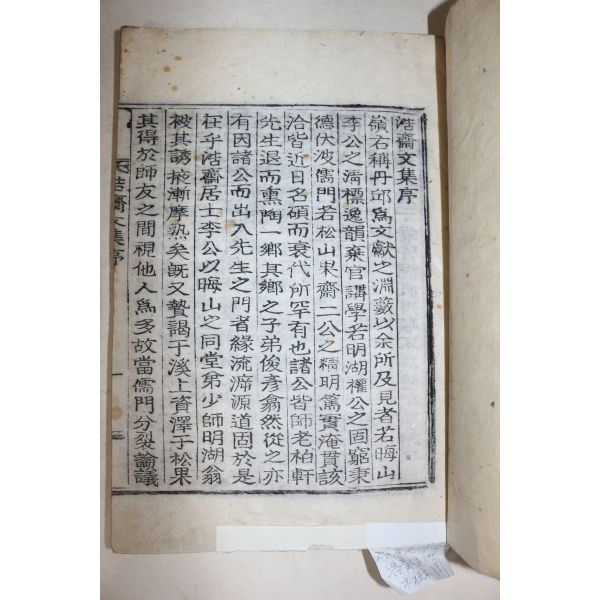 浩齋文集序
嶺右稱丹邱爲文獻之淵藪以余所及見者若晦山
李公之淸標逸韻棄官講學若明湖權公之固窮秉
德伏波儒門若松山果齋二公之精明篤實淹貫該
洽皆近日名碩而衰代所罕有也諸公皆師老柏軒
先生退而熏陶一鄕其鄕之子弟俊彦翕然從之亦
有因諸公而出入先生之門者緣流泝源道固於是
在乎浩齋居士李公以晦山之同堂弟少師明湖翁
被其誘掖漸摩熟矣旣又贄謁于溪上資澤于松果
其得於師友之間視他人爲多故當儒門分裂論議
浩齋文集序
一